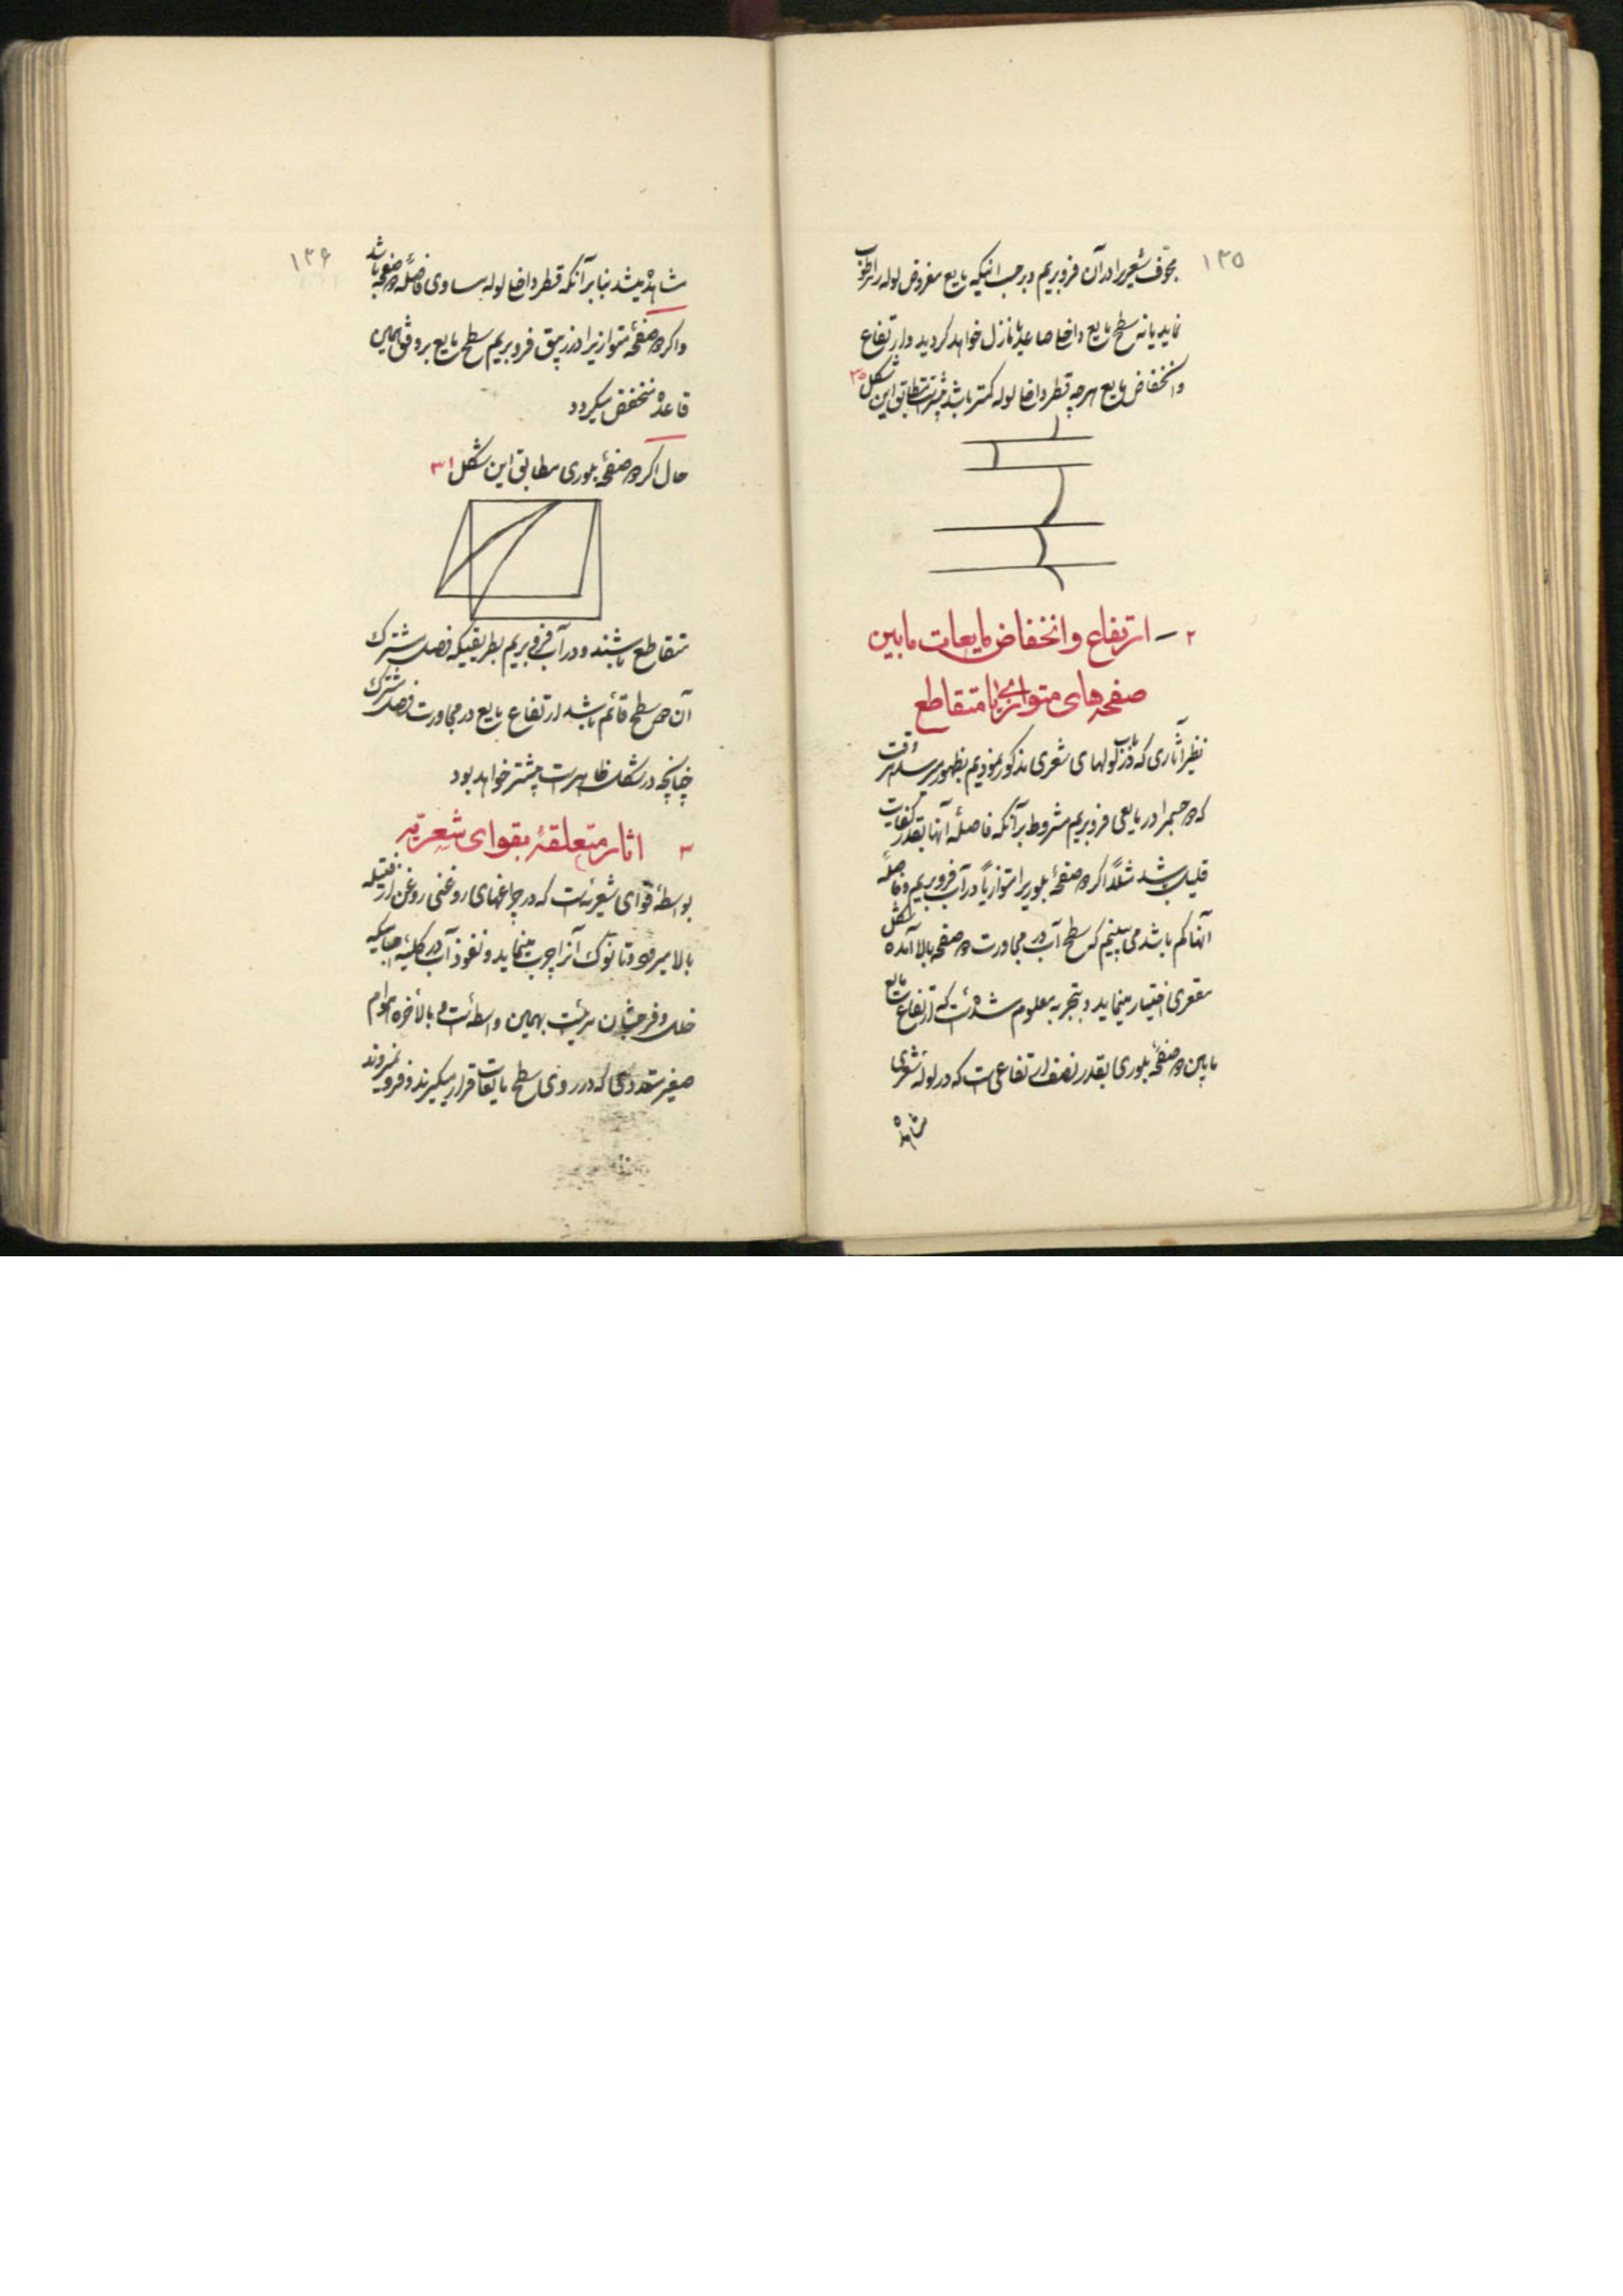 ۱۳۵
مجوف شعریرا در آن فرو بریم و بر حسب اینکه مایع مفروض لوله را مرطوب
نماید یا نه سطح مایع داخل صاعد یا نازل خواهد گردید و ارتفاع
و انخفاض مایع هر چه قطر داخل لوله کمتر باشد بیشتر است مطابق این شکل ۳۰
۲ – ارتفاع و انخفاض مایعات مابین
صفحه‌های متوازی یا متقاطع
نظیر آثاری که در باب لولهای شعری مذکور نمودیم بظهور میرسد هر وقت
که دو جسم را در مایعی فرو بریم مشروط بر آنکه فاصلهٔ آنها بقدر کفایت
قلیل باشد مثلاً اگر دو صفحهٔ بلوریرا متوازیاً در آب فرو بریم و فاصلهٔ
آنها کم باشد می‌بینیم که سطح آب در مجاورت دو صفحه بالا آمده شکل
مقعری اختیار مینماید و بتجربه معلوم شده‌است که ارتفاع مایع
مابین دو صفحهٔ بلوری بقدر نصف ارتفاعی است که در لولهٔ شعری
مشاهده
۱۳۶
مشاهده میشد بنابر آنکه قطر داخل لوله مساوی فاصلهٔ دو صفحه باشد
و اگر دو صفحهٔ متوازیرا در زیبق فرو بریم سطح مایع بر وفق همین
قاعده منخفض میگردد
حال اگر دو صفحهٔ بلوری مطابق این شکل ۳۱
متقاطع باشند و در آب فرو بریم بطریقیکه فصل مشترک
آن دو سطح قائم باشد ارتفاع مایع در مجاورت فصل مشترک
چنانچه در شکل ظاهر است بیشتر خواهد بود
۳ اثار متعلقهٔ بقوای شعریه
بواسطهٔ قوای شعریه است که در چراغهای روغنی روغن از فتیله
بالا میرود و تا نوک آنرا چرب مینماید و نفوذ آب در کلیهٔ اجسامیکه
خلل و فرجشان مرئیست بهمین واسطه است و بالأخره اجرام
صغیر متعددی که در روی سطح مایعات قرار میگیرند و فرو نمیروند